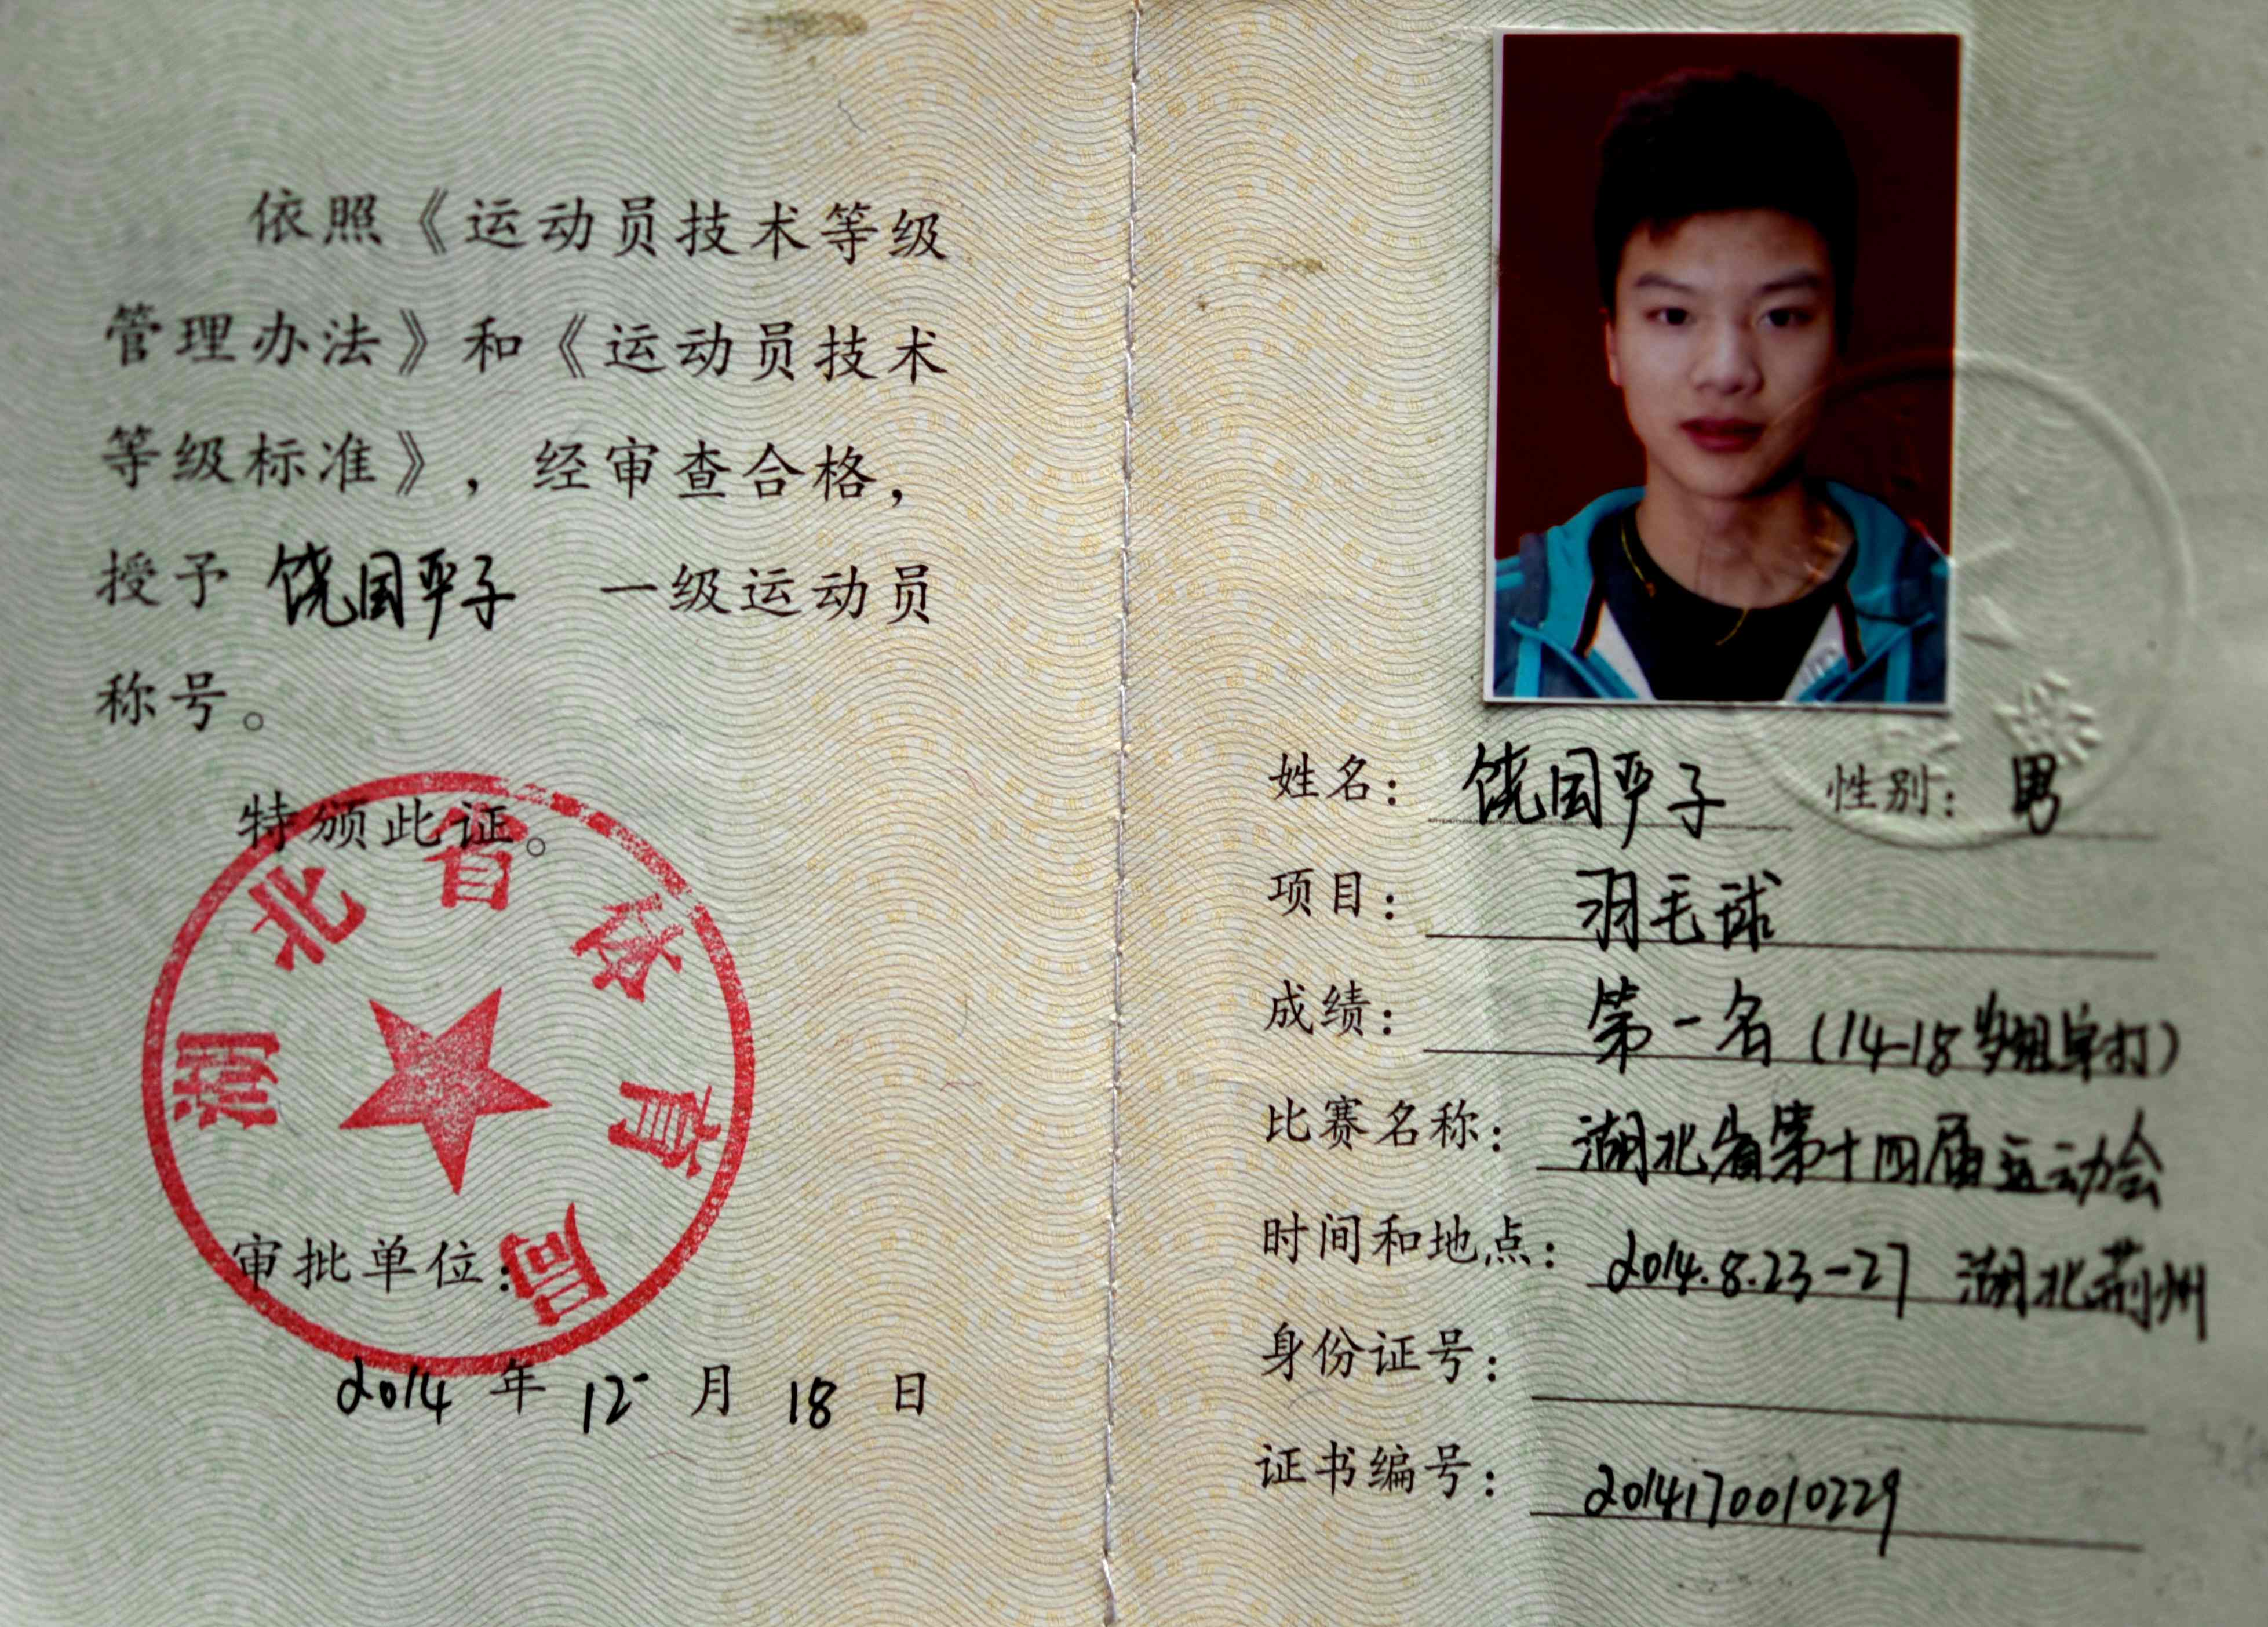 依照《运动员技术等级
管理办法》和《运动员技术
等级标准》，经审查合格，
授予 饶国平子 一级运动员
称号。
特颁此证。
湖北省体育局
审批单位：
2014 年 12 月 18 日
姓名： 饶国平子 性别： 男
项目： 羽毛球
成绩： 第一名（14-18岁组单打）
比赛名称： 湖北省第十四届运动会
时间和地点： 2014.8.23-27 湖北荆州
身份证号：
证书编号： 2014170010229